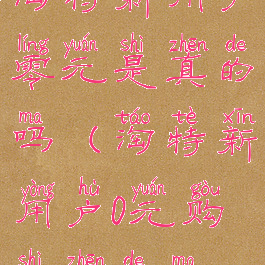 líng yuán shì zhēn de
零元是真的
ma táo tè xīn
吗（淘特新
yòng hù yuán gòu
用户0元购
shì zhēn de ma